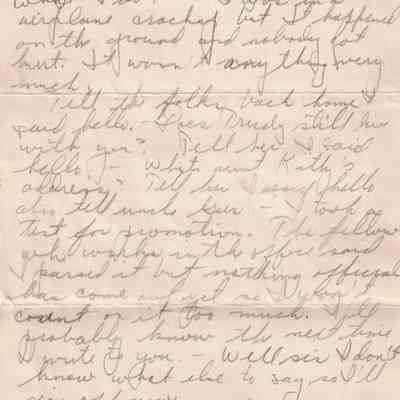 airplane crashed but it happened
on the ground and nobody got
hurt. It wasn't anything very
much.
Tell the folks back home I
said hello. - Does Trudy still live
with you? Tell her I said
hello. - Whats aunt Kitty's
address? Tell her I say hello
also tell uncle - I took a
test for promotion. The fellow
who works in the office said
I passed it but nothing official
has come out yet so I won't
count on it too much. I'll
probably know the next time
I write to you. - Well sir I don't
know what else to say so I'll